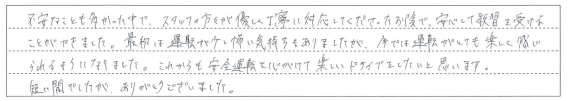 不安なことも多かった中で、スタッフの方々が優しく丁寧に対応してくださったお陰で、安心して教習を受ける
ことができました。最初は運転が少し怖い気持ちもありましたが、今では運転がとても楽しく感じ
られるようになりました。これからも安全運転を心がけて楽しいドライブをしたいと思います。
短い間でしたが、ありがとうございました。